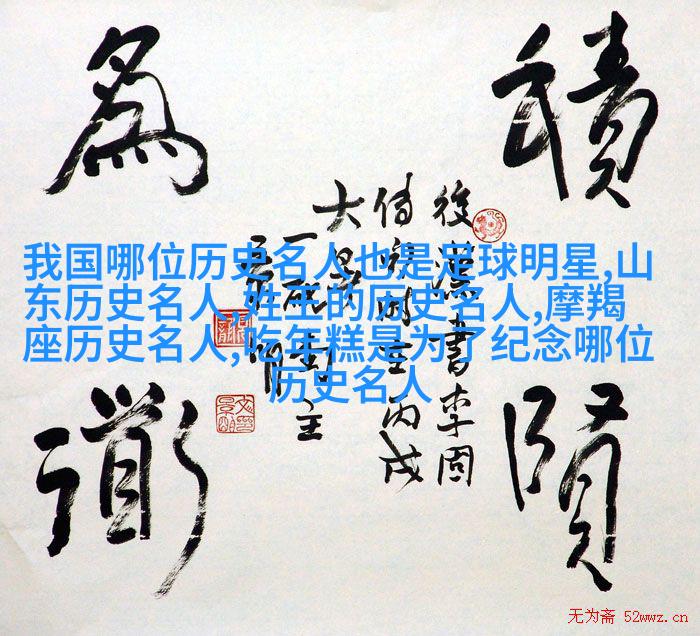 積賢
為衟
後漢書李固
时在丙戌
大暑
我国哪位历史名人也是足球明星,山
东历史名人,姓王的历史名人,摩羯
座历史名人,吃年糕是为了纪念哪位
历史名人
无为斋 52wwz.cn